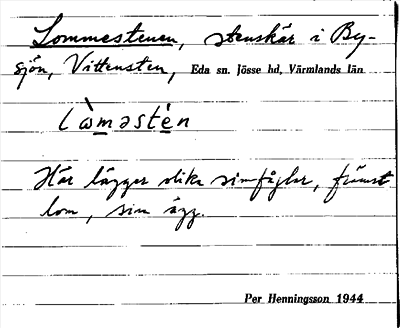 Lommestenen, stenskär i By-
sjön, Vittensten, Eda sn. Jösse hd, Värmlands län
lòməstèn
Här lägger olika simfåglar, främst
lom, sin ägg.
Per Henningsson 1944